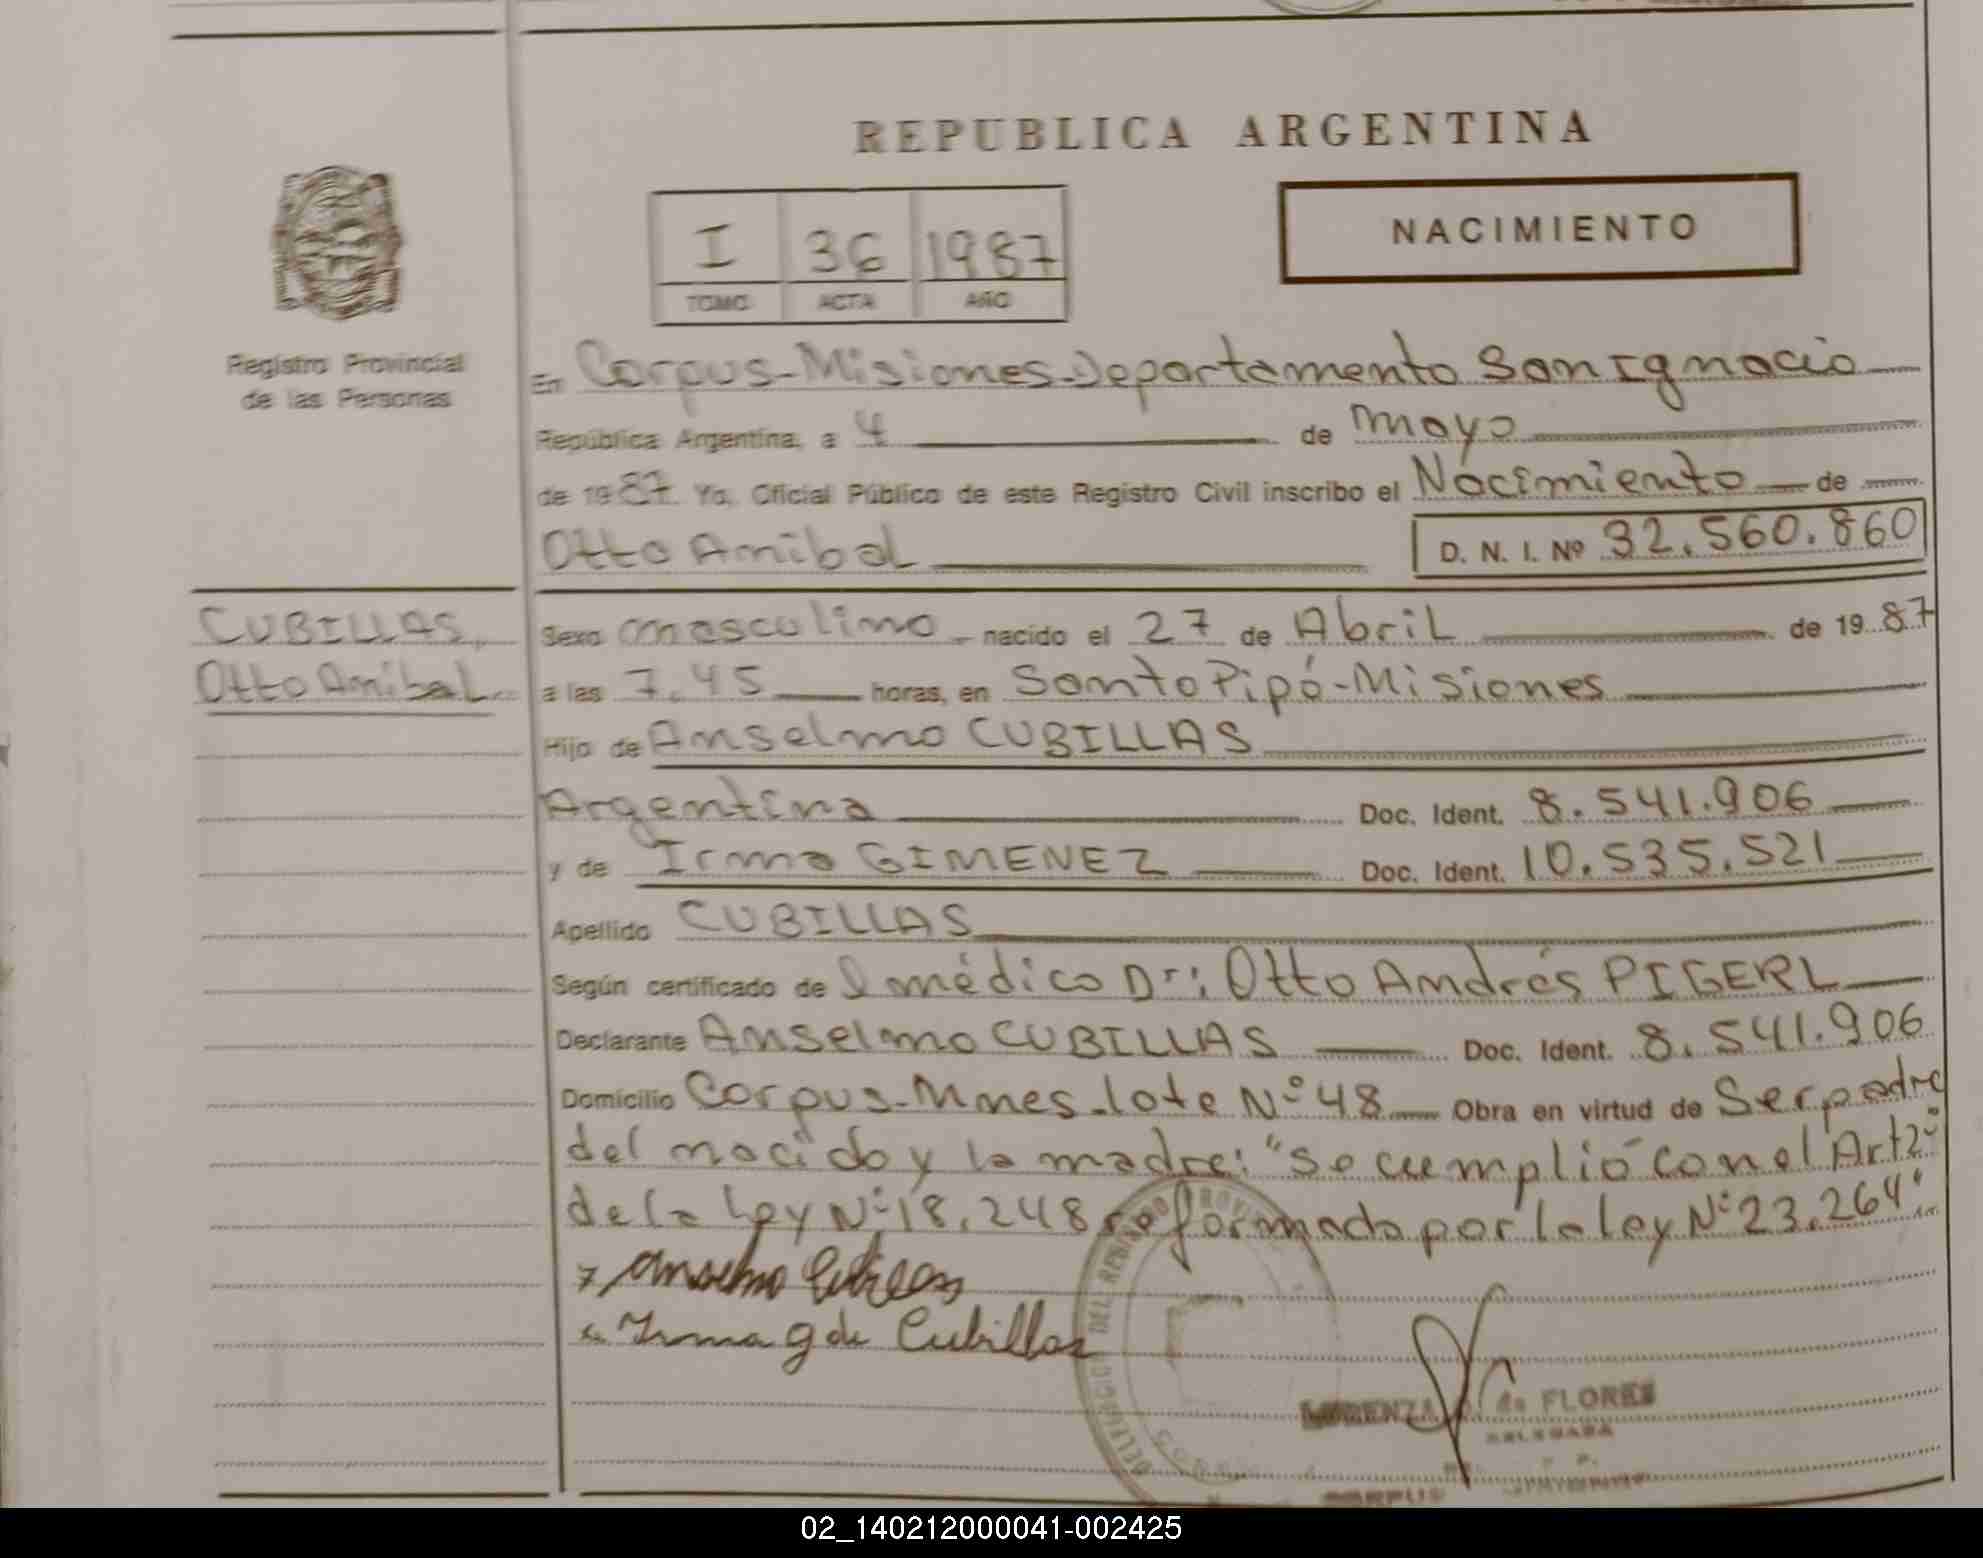 REPUBLICA ARGENTINA
I 36 1987
TOMO ACTA AÑO
NACIMIENTO
Registro Provincial
de las Personas
En Corpus-Misiones-Departamento San Ignacio
República Argentina, a 4 de mayo
de 1987 Yo, Oficial Público de este Registro Civil inscribo el Nacimiento de
Otto Anibal D. N. I. Nº 32.560.860
CUBILLAS,
Otto Anibal
Sexo masculino nacido el 27 de Abril de 1987
a las 7.45 horas, en Santo Pipó-Misiones
Hijo de Anselmo CUBILLAS
Argentina Doc. Ident. 8.541.906
y de Irma GIMENEZ Doc. Ident. 10.535.521
Apellido CUBILLAS
Según certificado del médico Dr: Otto Andrés PIGERL
Declarante Anselmo CUBILLAS Doc. Ident. 8.541.906
Domicilio Corpus-Mnes-lote Nº 48 Obra en virtud de Ser padre
del nacido y la madre: "Se cumplió con el Art 2º
de la Ley Nº 18.248 reformada por la ley Nº 23.264"
Anselmo Cubillas
Irma G de Cubillas
DELEGACION DEL REGISTRO PROVINCIAL
LORENZA de FLORES
DELEGADA
CORPUS
02_140212000041-002425